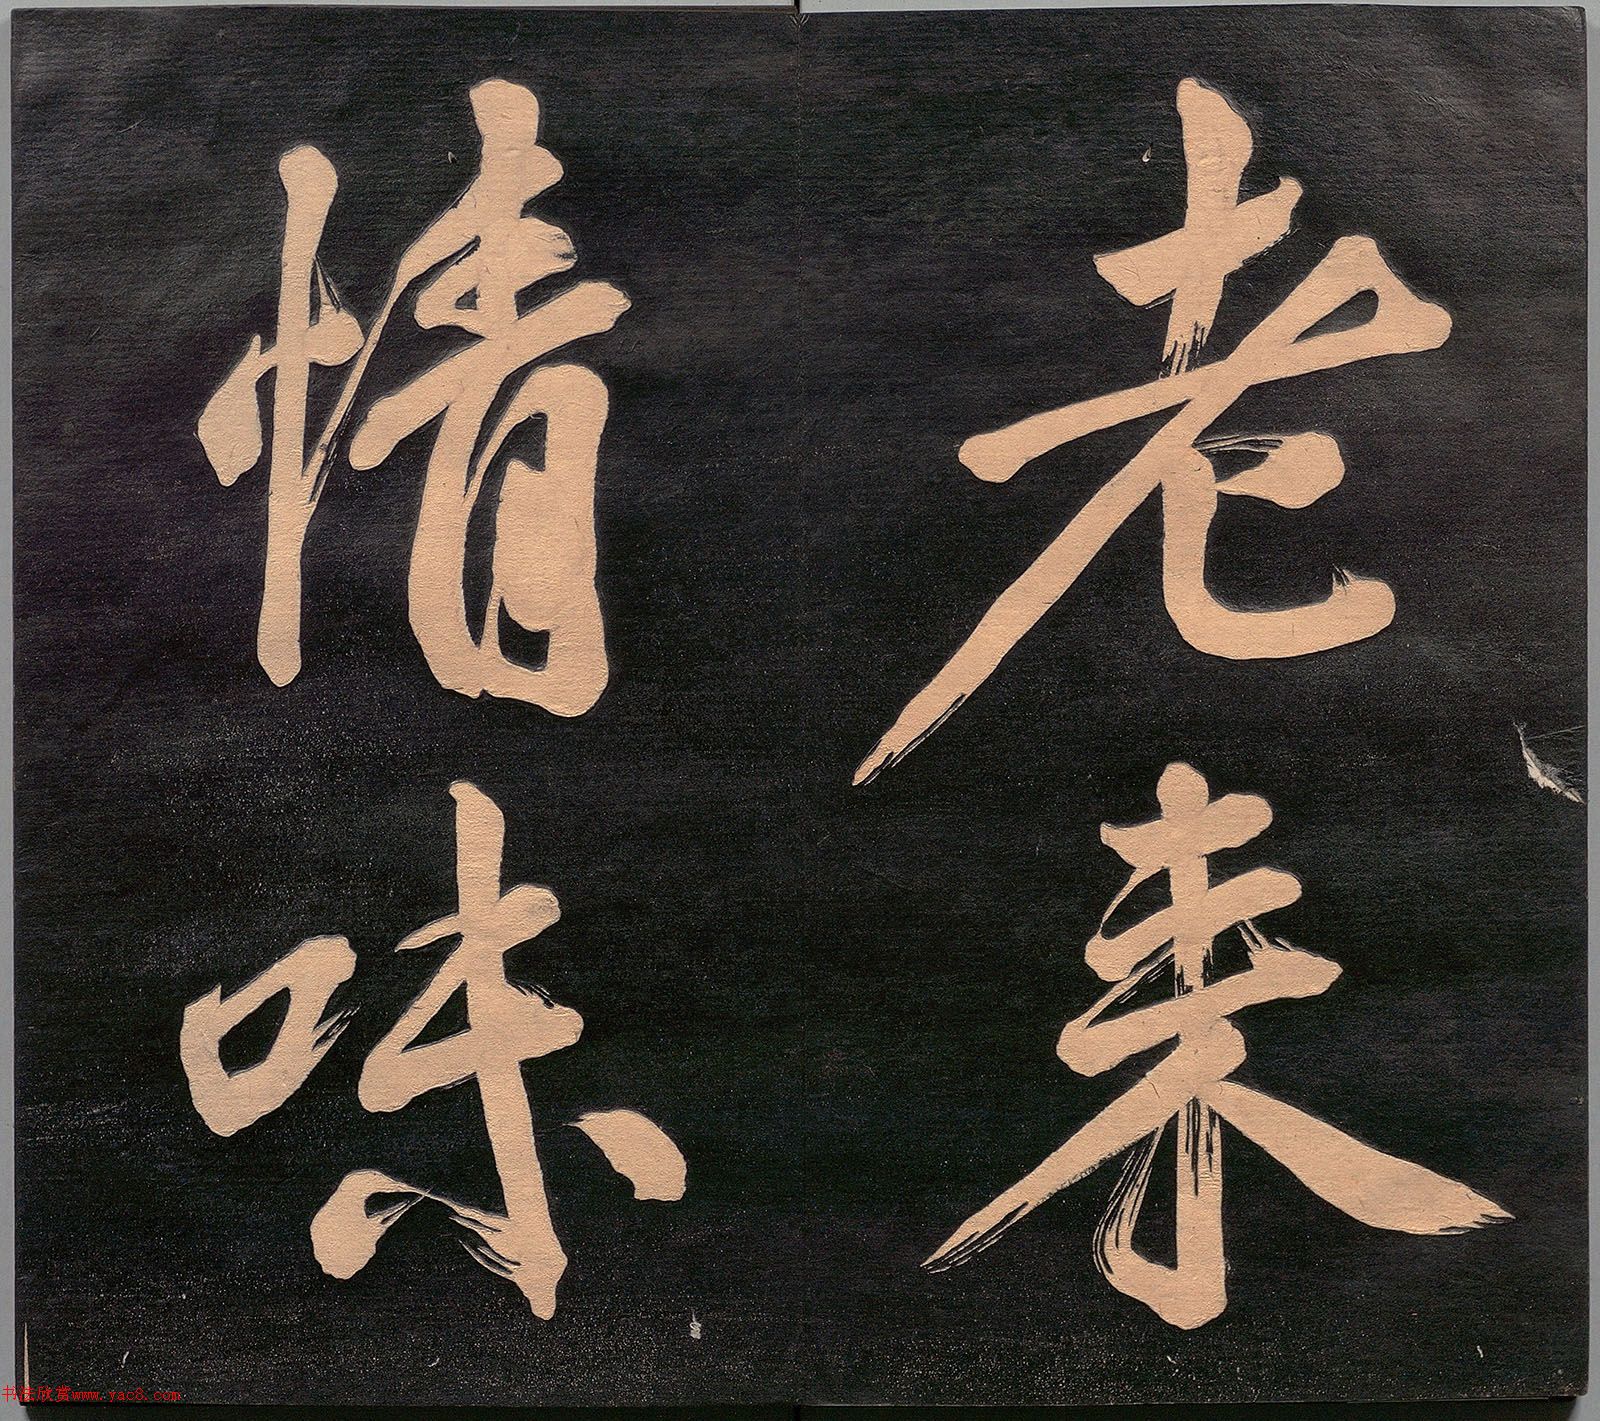 老来
情味
书法欣赏www.yac8.com